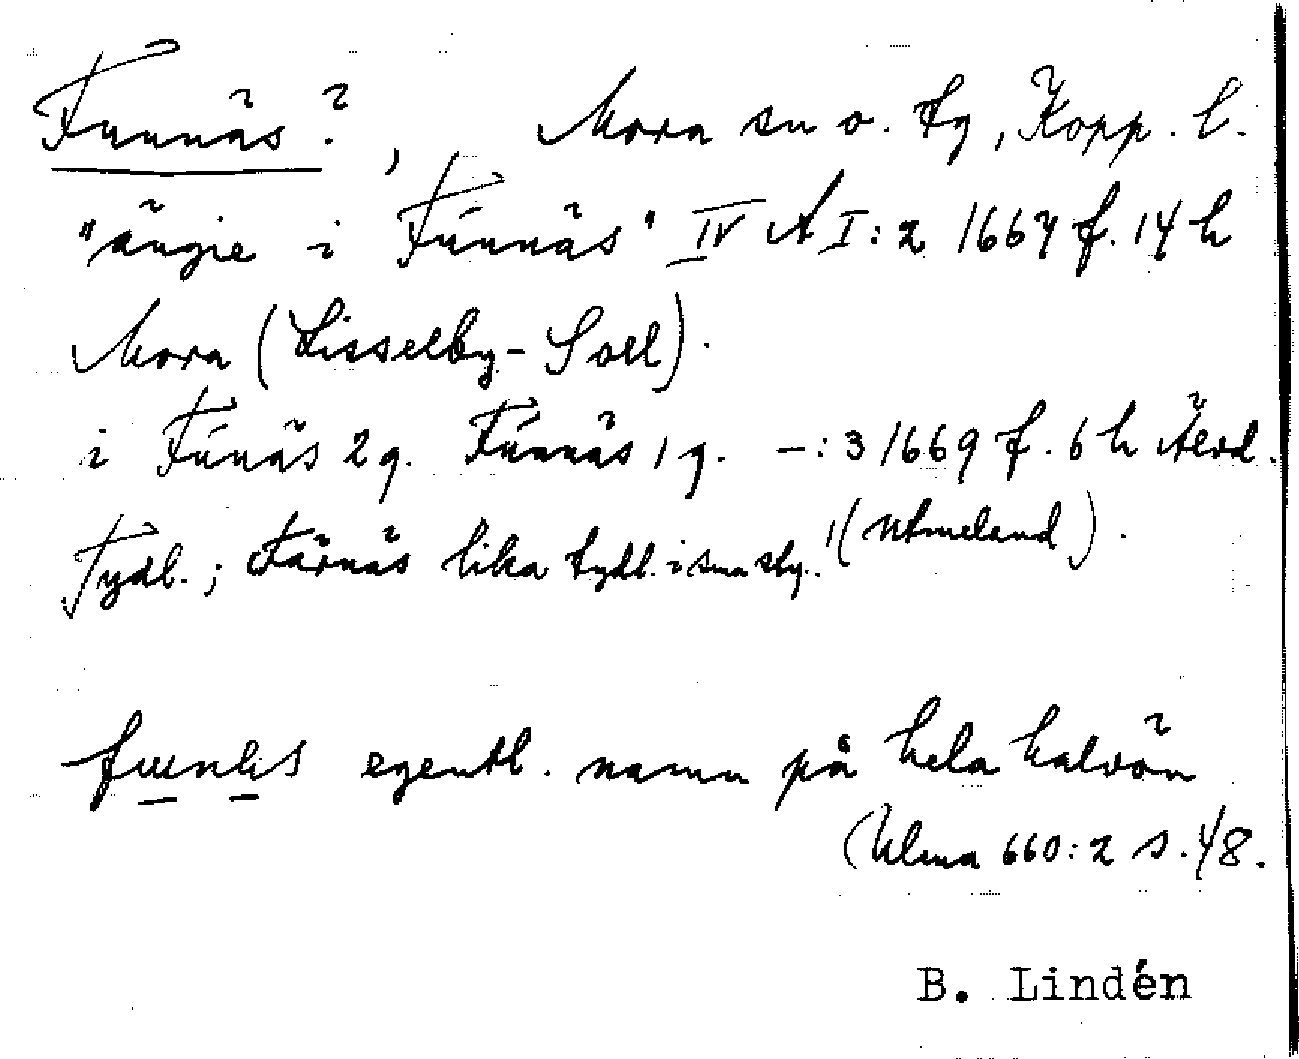 Funnäs?, Mora sn o. tg, Kopp. l.
"ängie i Funnäs" IV A I:2 1667 f. 14 h
Mora (Lisselby - Soll).
i Funäs 2 g. Funnäs 1 g. -:3 1669 f. 6 h Älvd.
Tydl.; Färnäs lika tydl. i smstg. (Utmeland).
egentl. namn på hela halvön
(Ulma 660:2 s. 48.
B. Lindén